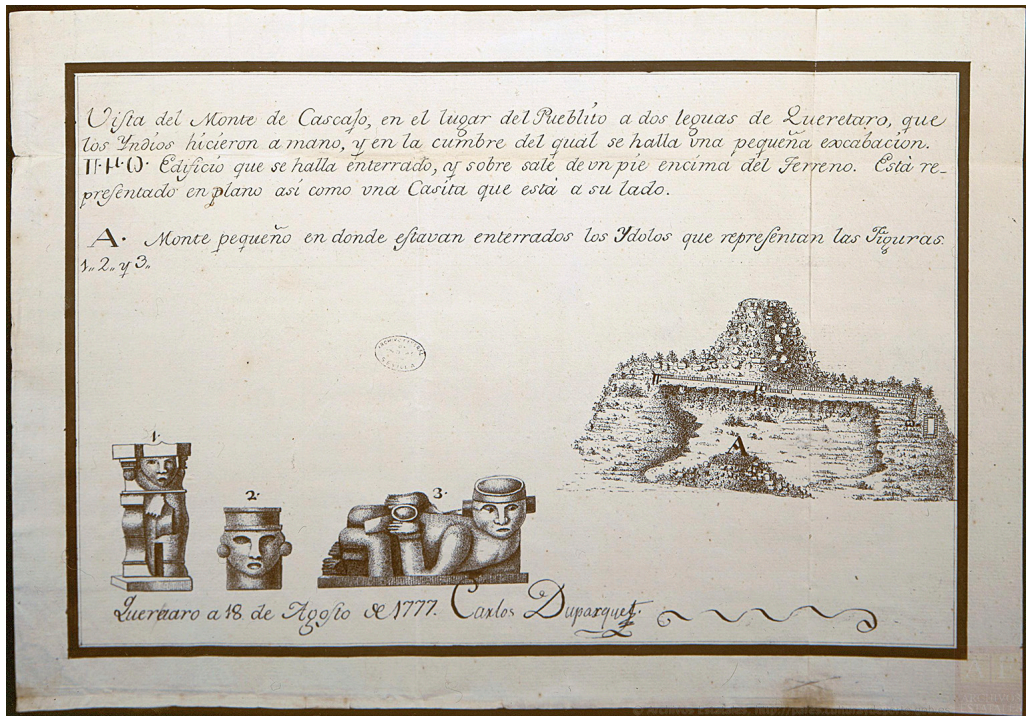 Viſta del Monte de Cascaſo, en el lugar del Pueblito a dos leguas de Queretaro, que
los Yndios hicieron a mano, y en la cumbre del qual se halla vna pequeña excabacion.
H·H·O· Edificio que se halla enterrado, y sobre sale de vn pie encima del Terreno. Està re-
preſentado en plano así como vna Casita que está a su lado.
A. Monte pequeño en donde eſtavan enterrados los Ydolos que repreſentan las Figuras.
1„ 2„ y 3„
A
1.
2.
3.
Queretaro a 18 de Agoſto de 1777. Carlos Duparquet.